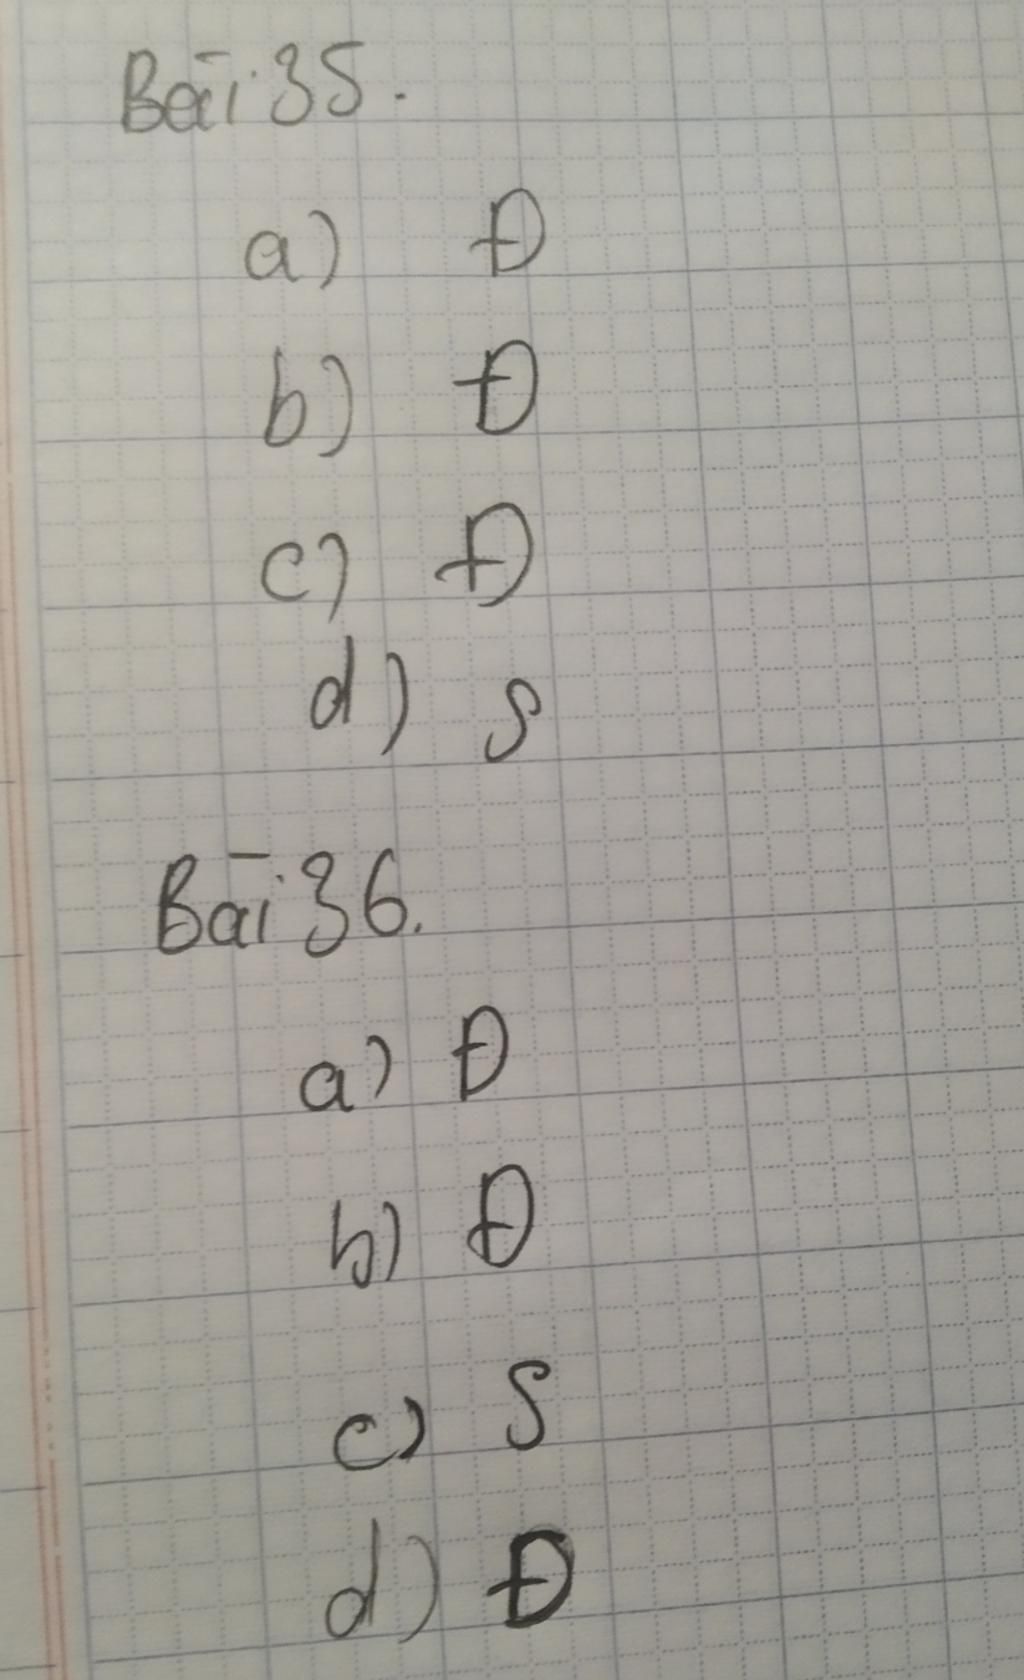 Bài 35.
a) Đ
b) Đ
c) Đ
d) S
Bài 36.
a) Đ
b) Đ
c) S
d) Đ